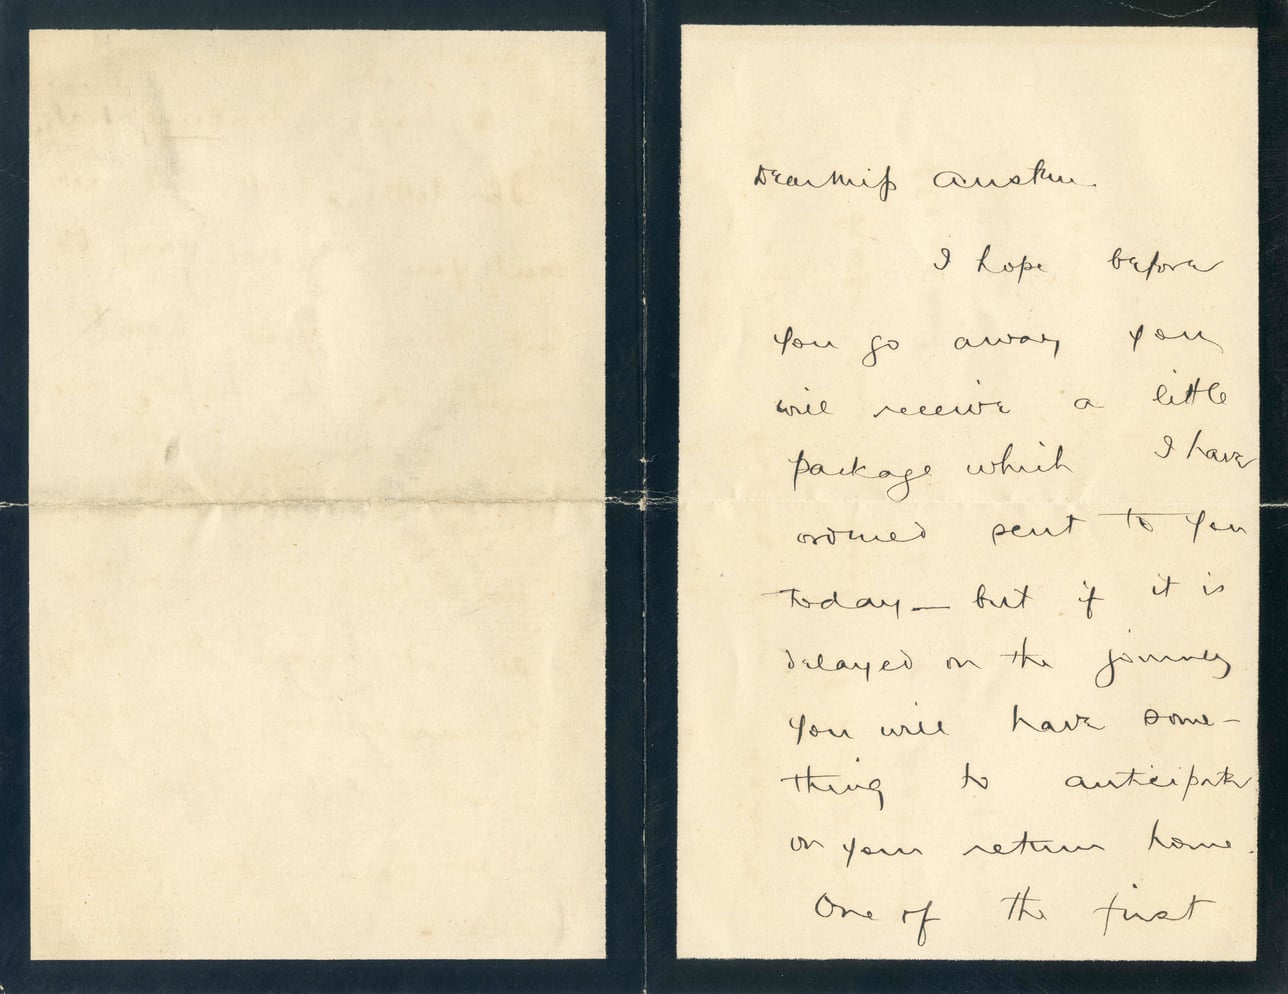 Dear Miss Austin.
I hope before
you go away you
will receive a little
package which I have
ordered sent to you
today — but if it is
delayed on the journey
you will have some-
thing to anticipate
on your return home.
One of the first